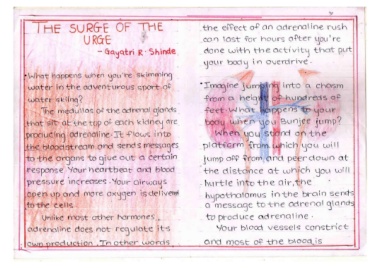 THE SURGE OF THE
URGE
- Gayatri R. Shinde
• What happens when you're skimming
water in the adventurous sport of
water skiing?
The medullas of the adrenal glands
that sit at the top of each kidney are
producing adrenaline. It flows into
the bloodstream and sends messages
to the organs to give out a certain
response. Your heartbeat and blood
pressure increases. Your airways
open up and more oxygen is delivered
to the cells.
Unlike most other hormones,
adrenaline does not regulate its
own production. In other words,
the effect of an adrenaline rush
can last for hours after you're
done with the activity that put
your body in overdrive.
• Imagine jumping into a chasm
from a height of hundreds of
feet. What happens to your
body when you Bunjee jump?
When you stand on the
platform from which you will
jump off from and peer down at
the distance at which you will
hurtle into the air, the
hypothalamus in the brain sends
a message to the adrenal glands
to produce adrenaline.
Your blood vessels constrict
and most of the blood is